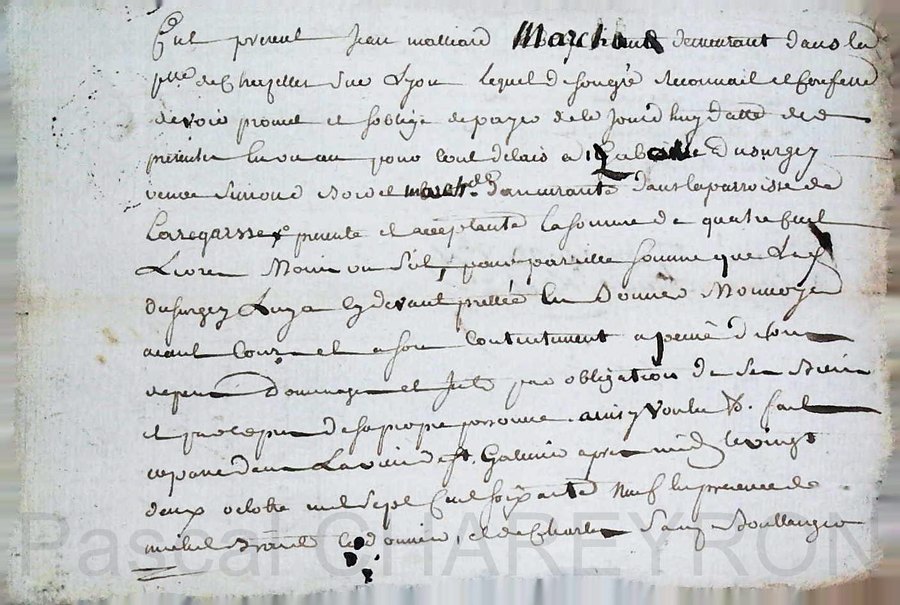 fut présent Jean malliard Marchand demeurant dans la
psse de Chazelles sur Lyon lequel de son gré reconnait et confesse
devoir promet et s'oblige de payer de ce jourd'huy datte des
présentes en un an pour tout delais a dusurgey
veuve Simond march.de demeurante dans la parroisse de
presente et acceptante la somme de quatre cent
Livres Moins un sol, pour pareille somme que La
dusurgey Luy a cy devant prettée en Bonnes Monnoyes
aiant Cours et a son Contentement a peine de tous
depens Dommages et par obligation de ses Biens
et par exprès de sa propre personne. ainsy voulu &. fait
et passé dans La ville de St. Galmier apres midy le vingt
deux octobre mil sept cent soixante Neuf en presence de
michel et de Charles Boullanger
Pascal CHAREYRON